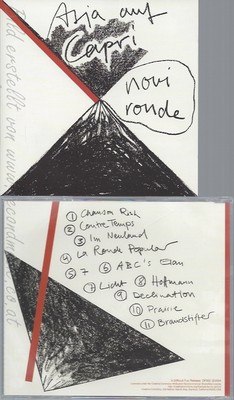 Asja auf
Capri
novi
ronde
① Chanson Risk
② Contre Temps
③ Im Neuland
④ La Ronde Popular
⑤ 7 ⑥ ABC's Elan
⑦ Licht ⑧ Hofmann
⑨ Declination
⑩ Prairie
⑪ Brandstifter
Bild erstellt von www.